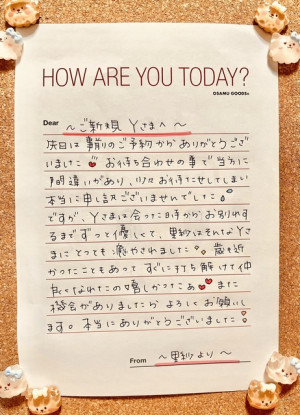 HOW ARE YOU TODAY?
OSAMU GOODS®
Dear ～ご新規 Yさまへ～
先日は事前のご予約からありがとうござ
いました
お待ち合わせの事で当方に
間違いがあり、少々お待たせしてしまい
本当に申し訳ございませんでした
ですが、Yさまは会った時からお別れす
るまでずっと優しくて、里紗はそんなYさ
まにとっても癒やされました 歳も近
かったこともあって すぐに打ち解けて仲
良くなれたの嬉しかったなぁ また
機会がありましたら よろしくお願いし
ます。本当にありがとうございました
From ～里紗より～